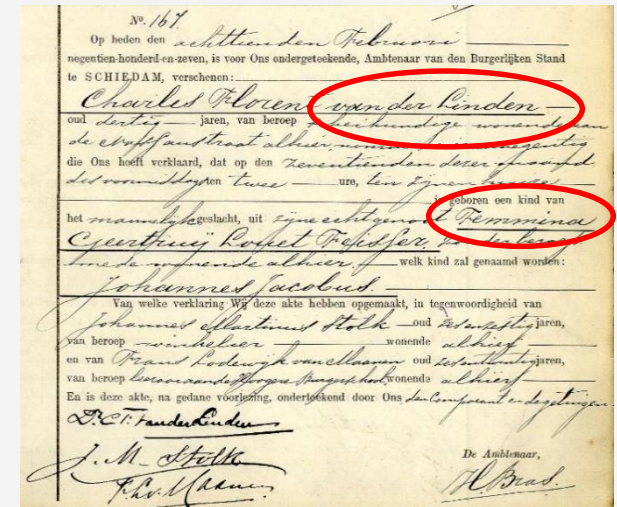 No. 167
Op heden den achttienden Februari
negentien-honderd-en-zeven, is voor Ons ondergeteekende, Ambtenaar van den Burgerlijken Stand
te SCHIEDAM, verschenen:
Charles Florent van der Linden
oud dertig jaren, van beroep scheikundige wonende aan
de straat alhier, nommer negentig
die Ons heeft verklaard, dat op den zeventienden dezer maand
des voormiddags ten twee ure, ten zijnen huize
is geboren een kind van
het mannelijk geslacht, uit zijne echtgenoot Femmina
Geertruij Louet Feisser, zonder beroep
mede wonende alhier welk kind zal genaamd worden:
Johannes Jacobus.
Van welke verklaring Wij deze akte hebben opgemaakt, in tegenwoordigheid van
Johannes Martinus Stolk oud zesenzestig jaren,
van beroep winkelier wonende alhier
en van Frans Lodewijk van Maanen oud jaren,
van beroep leeraar aan de Hoogere Burgerschool, wonende alhier
En is deze akte, na gedane voorlezing, onderteekend door Ons, den Comparant en de getuigen.
Dr. C. F. van der Linden
J. M. Stolk
F. L. v. Maanen
De Ambtenaar,
H. Bras.